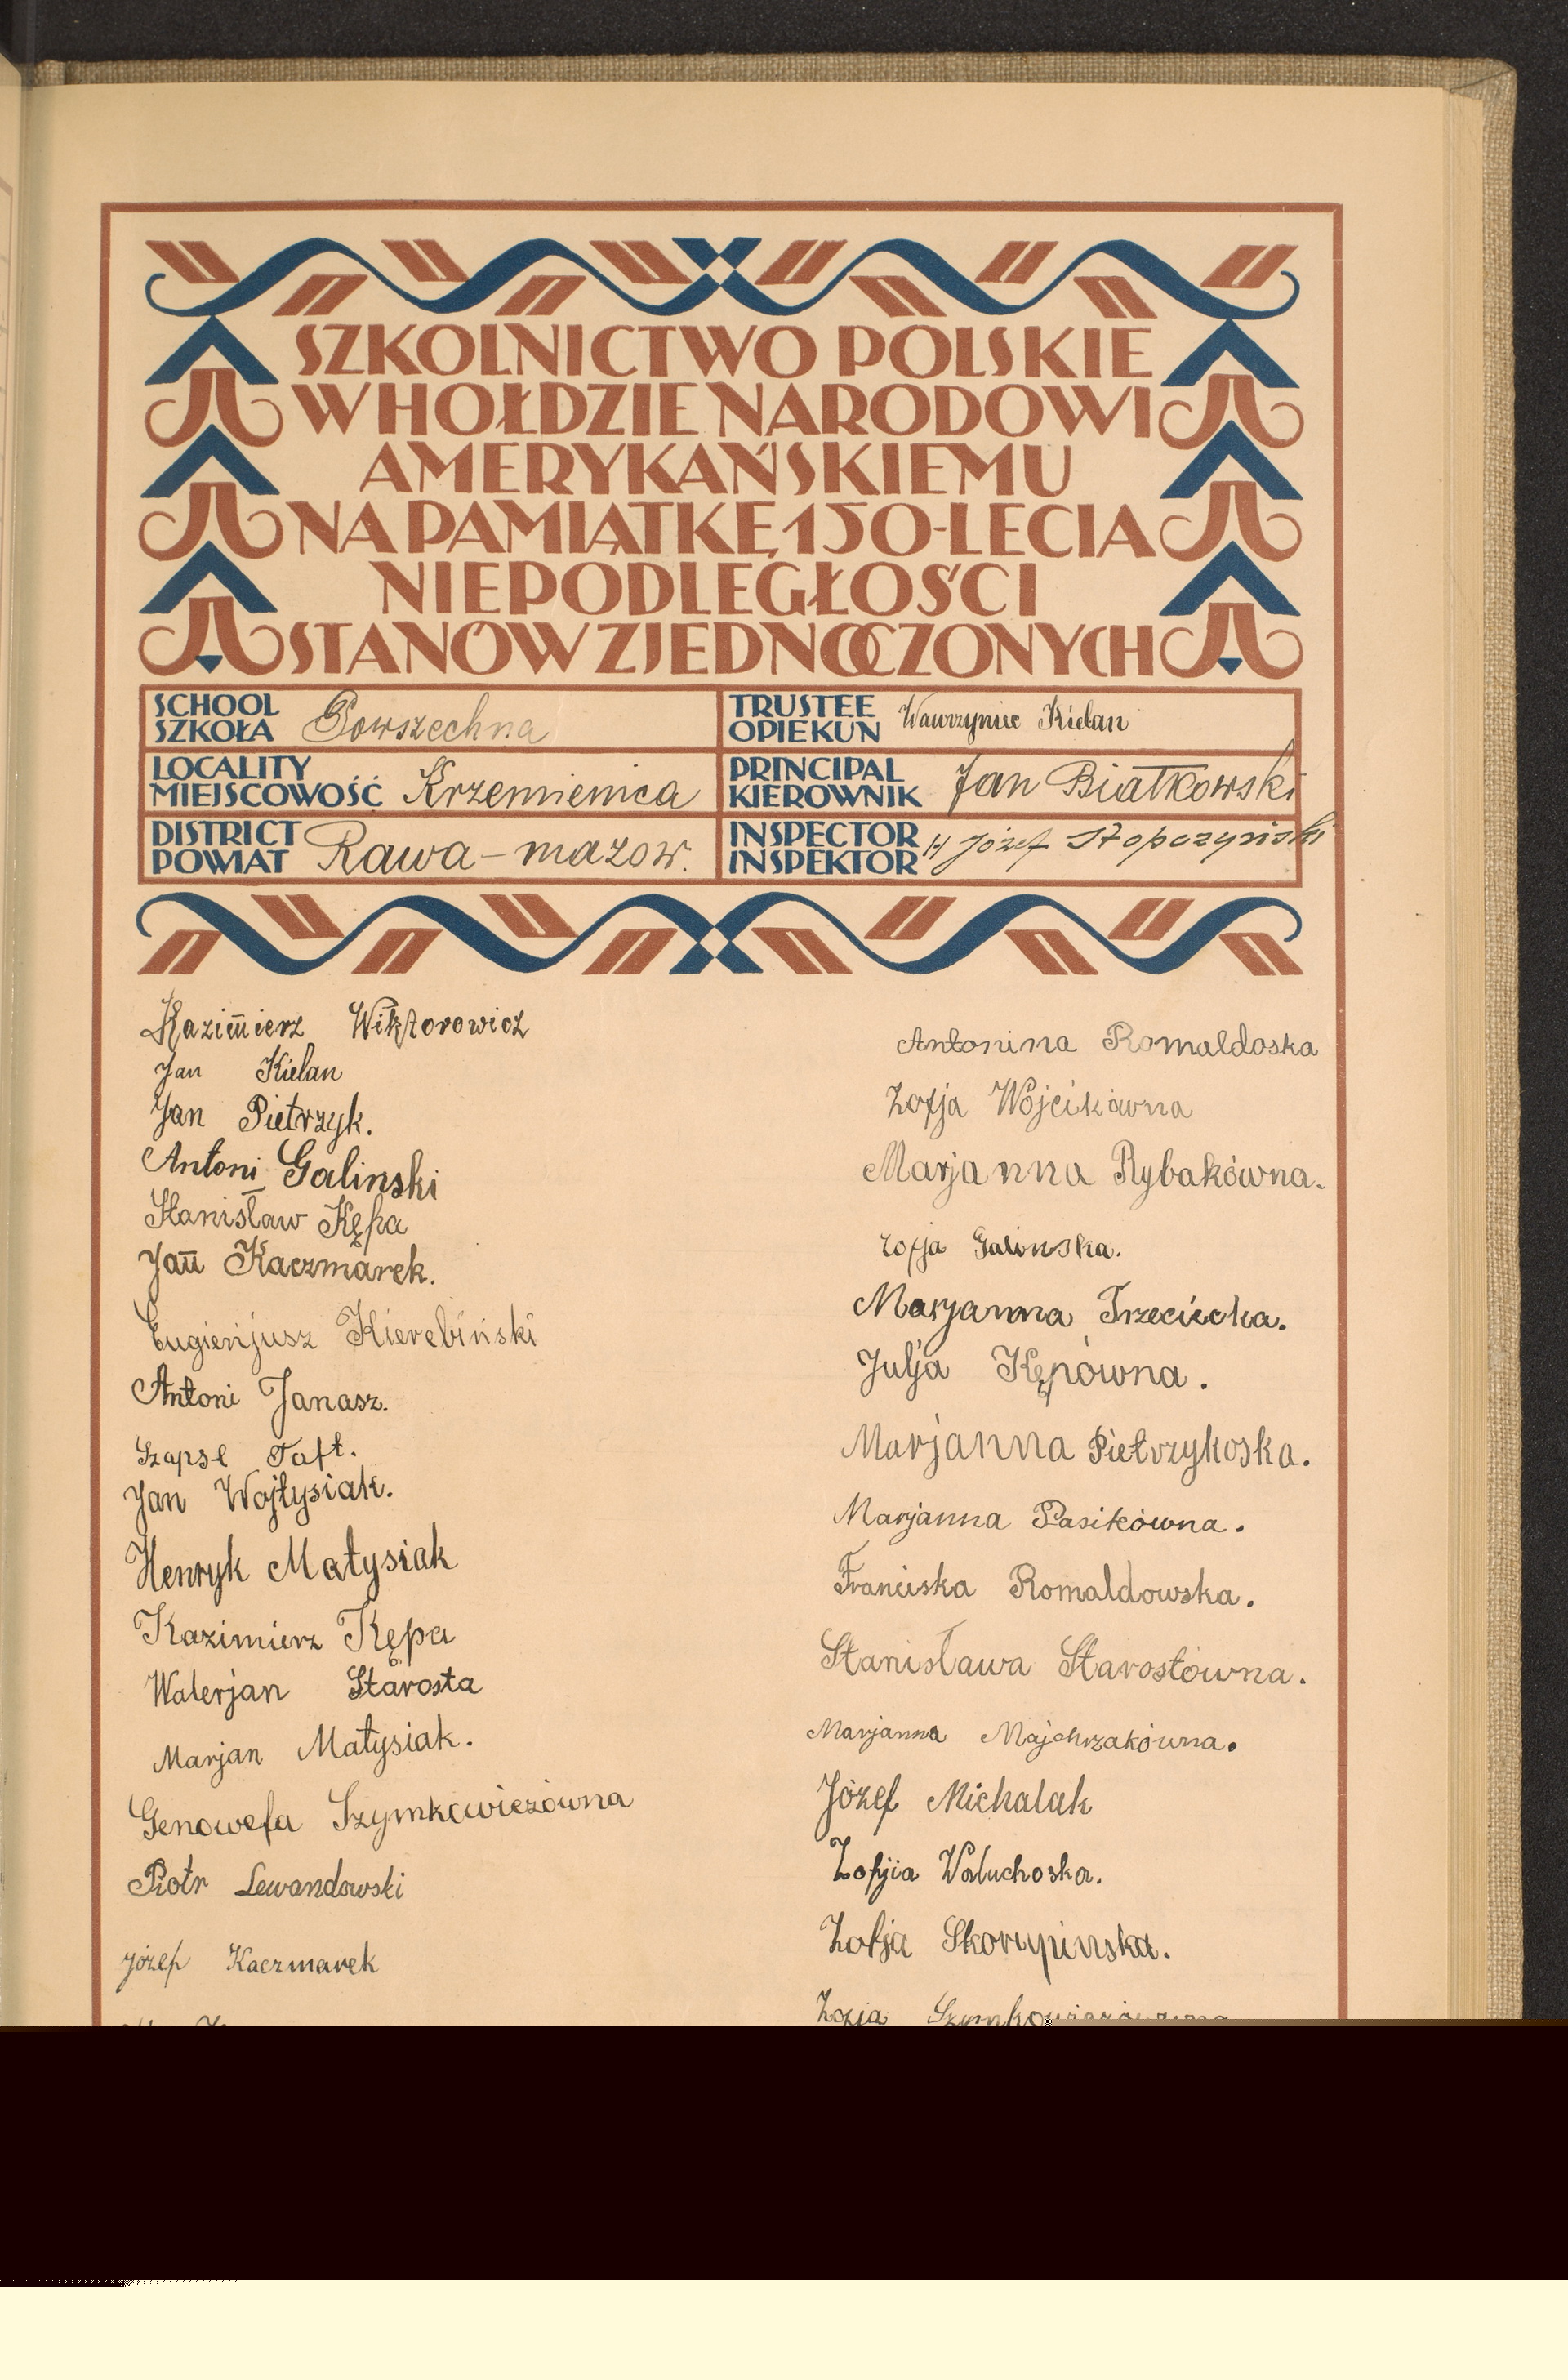 SZKOLNICTWO POLSKIE
W HOŁDZIE NARODOWI
AMERYKAŃSKIEMU
NA PAMIĄTKĘ 150-LECIA
NIEPODLEGŁOŚCI
STANÓW ZJEDNOCZONYCH
SCHOOL
SZKOŁA Powszechna
TRUSTEE
OPIEKUN Wawrzyniec Kielan
LOCALITY
MIEJSCOWOŚĆ Krzemienica
PRINCIPAL
KIEROWNIK Jan Białkowski
DISTRICT
POWIAT Rawa-mazow.
INSPECTOR
INSPEKTOR Józef Stopczyński
Kazimierz Wiktorowicz
Jan Kielan
Jan Pietrzyk.
Antoni Galinski
Stanisław Kępa
Jan Kaczmarek.
Eugienjusz Kierebiński
Antoni Janasz.
Szapsl Taft.
Jan Wojtysiak.
Henryk Matysiak
Kazimierz Kępa
Walerjan Starosta
Marjan Matysiak.
Genowefa Szymkowiczówna
Piotr Lewandowski
Józef Kaczmarek
Antonina Romaldoska
Zofja Wójcikówna
Marjanna Rybakówna.
Zofja Galinska.
Marjanna Trzeciecka.
Julja Kępówna.
Marjanna Pietrzykoska.
Marjanna Pasikówna.
Franciska Romaldowska.
Stanisława Starostówna.
Marjanna Majchrzakówna.
Józef Michalak
Zofjia Waluchoska.
Zofja Skorupinska.
Zofja